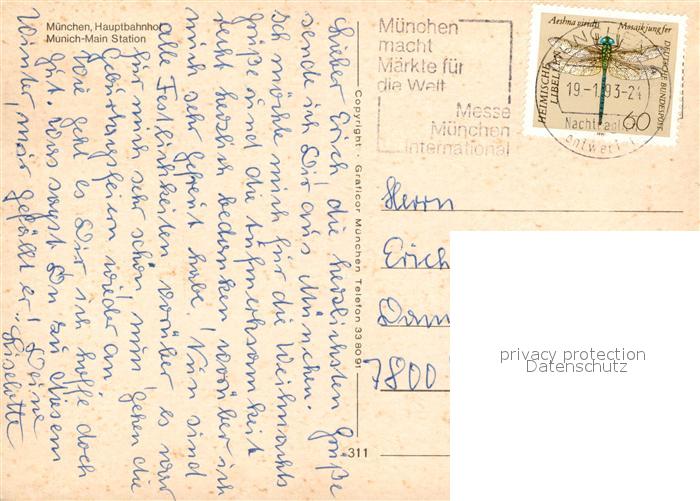 München, Hauptbahnhof
Munich-Main Station
Lieber Erich die herzlichsten Grüße
sende ich Dir aus München.
Ich möchte mich für die Weihnachts
Grüße und die Aufmerksamkeit
recht herzlich bedanken worüber ich
mich sehr gefreut habe! Nun sind
alle Festlichkeiten vorüber es war
für mich sehr schön nun gehen die
Geburtagsfeiern wieder an
Wie geht es Dir ich hoffe doch
gut. Was sagst Du zu diesem
Winter, mir gefällt er! Deine
Liselotte
Copyright · Graficor München Telefon 338091
311
München
macht
Märkte für
die Welt
Messe
München
international
Aeshna viridis Mosaikjungfer
HEIMISCHE
LIBELLEN
DEUTSCHE BUNDESPOST
60
MÜNCHEN
19-1.93-24
Herrn
Erich
7800
privacy protection
Datenschutz